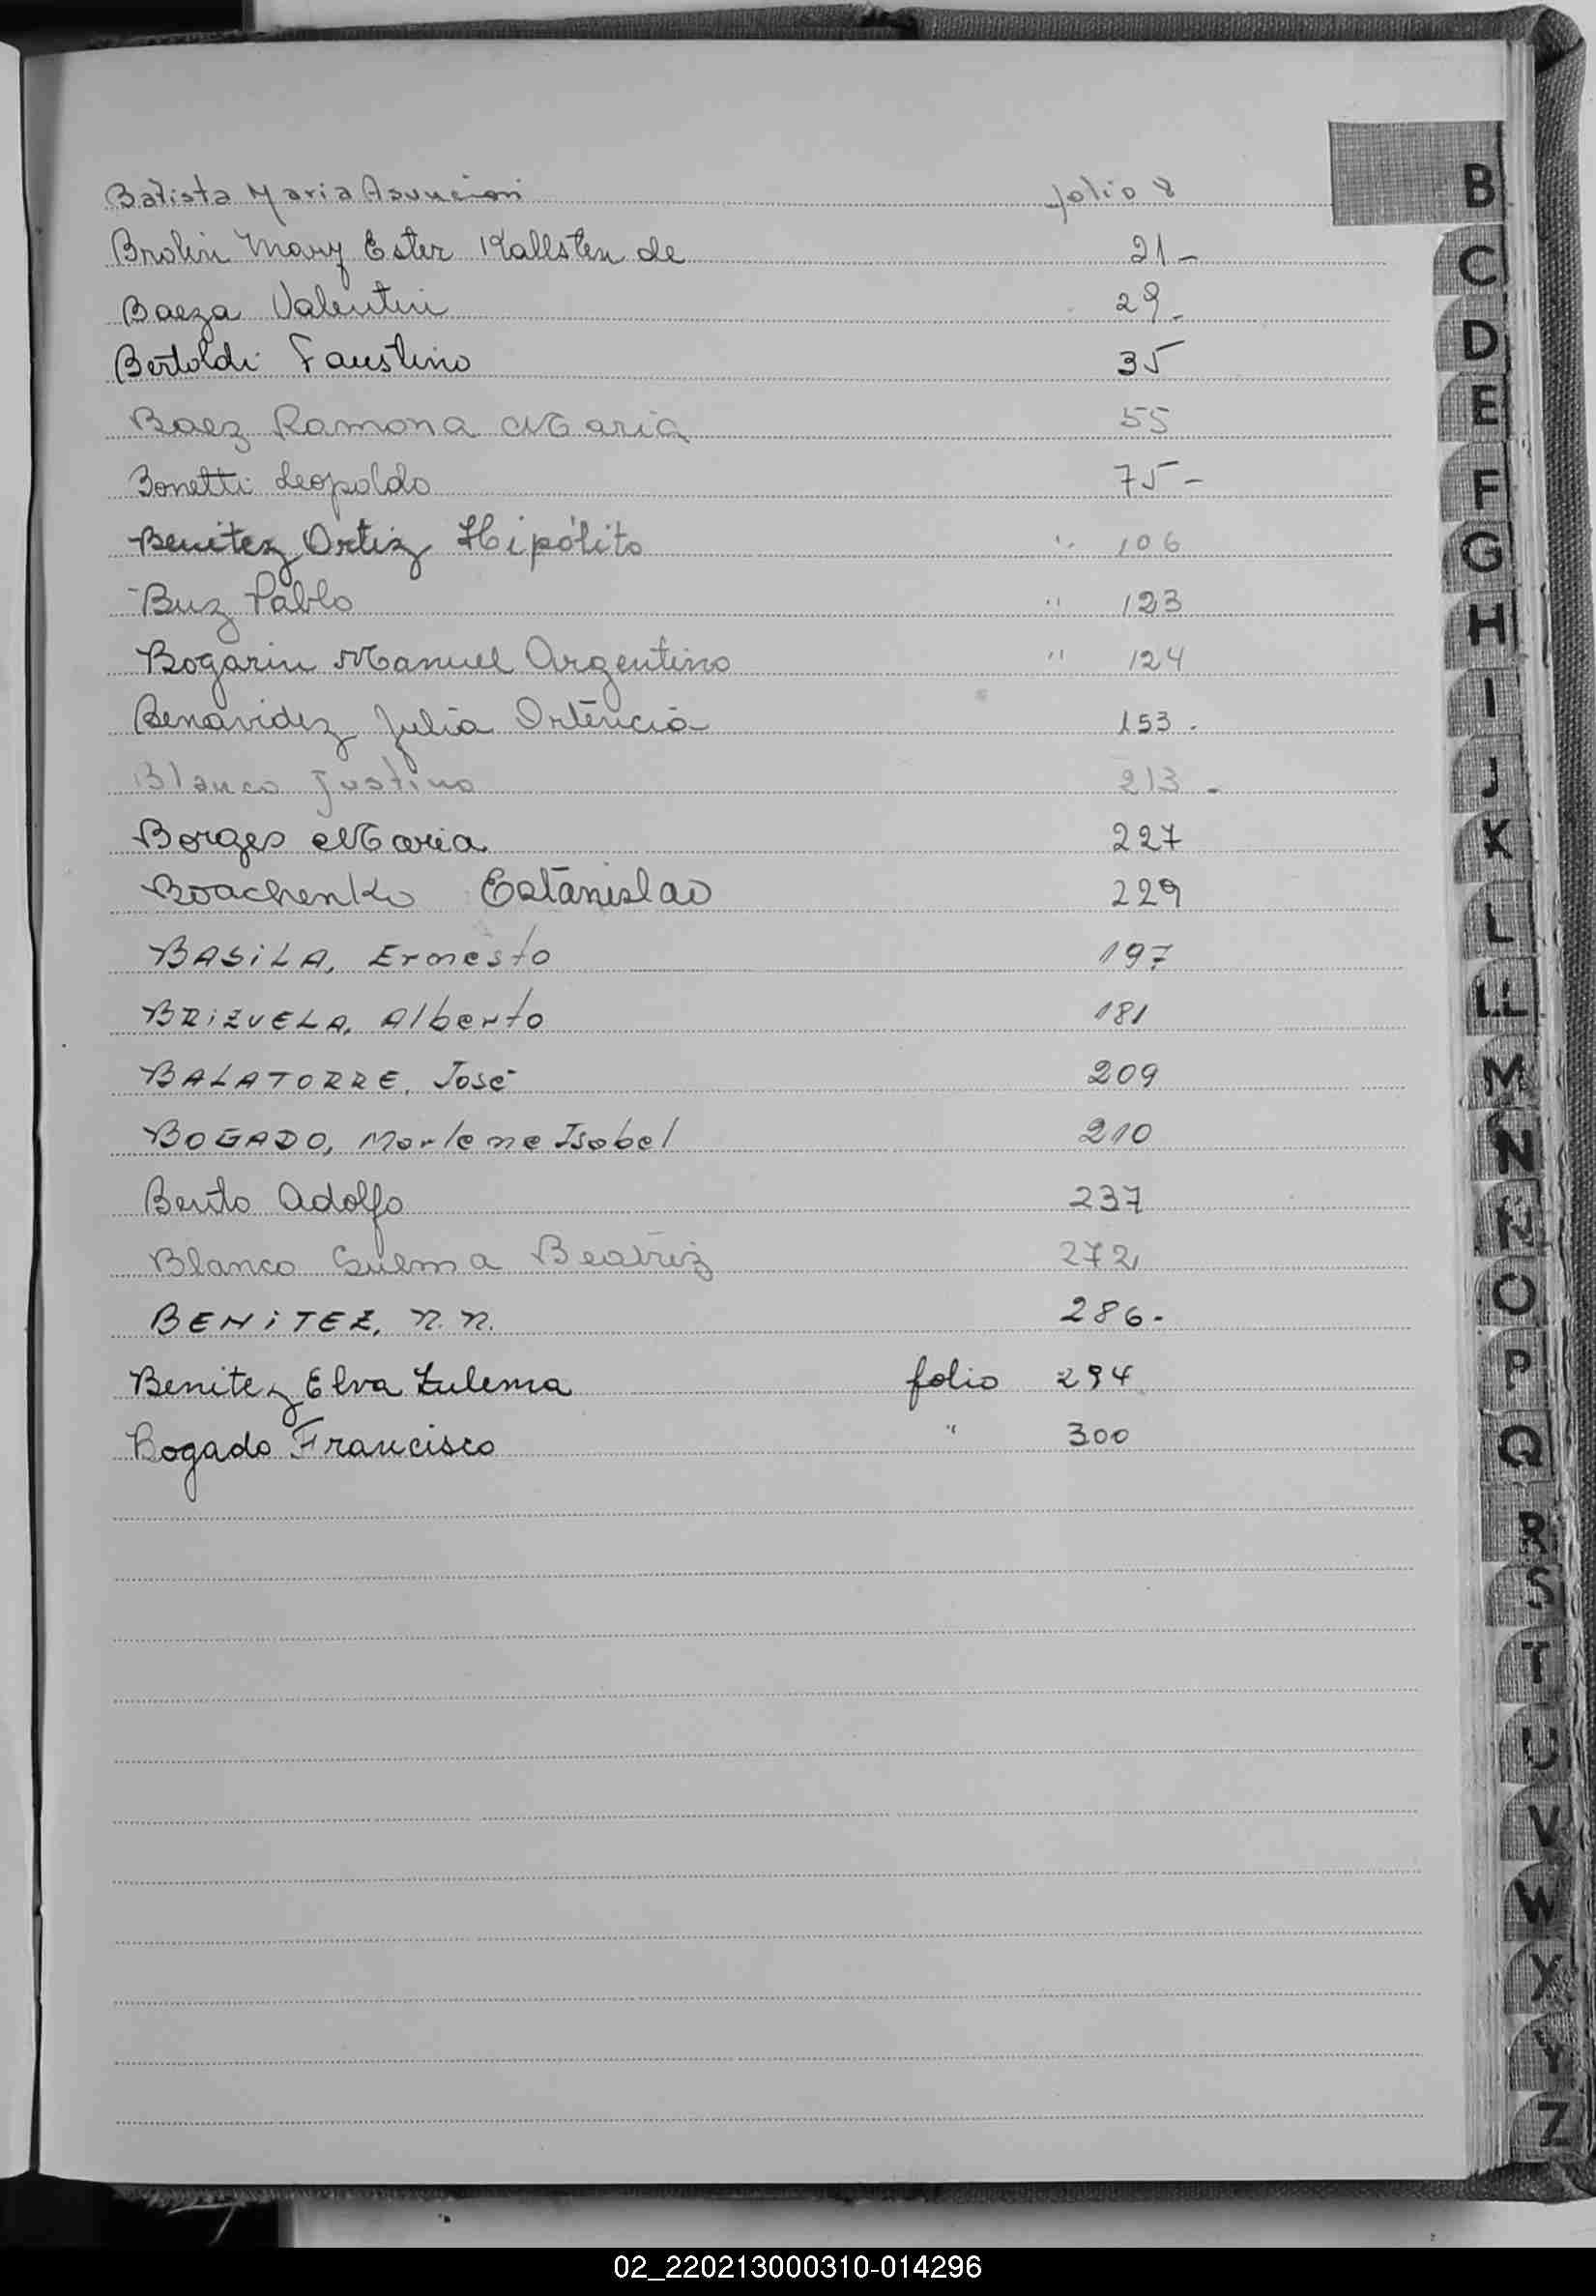 Batista Maria Asuncion folio 8
Brolin Mary Ester Kallsten de 21-
Baeza Valentin 29-
Bertoldi Faustino 35
Baez Ramona Maria 55
Bonetti Leopoldo 75-
Benitez Ortiz Hipólito " 106
Buz Pablo " 123
Bogarin Manuel Argentino " 124
Benavidez Julia Ortencia 153.
Blanco Justino 213-
Borges Maria 227
Boachenko Estanislao 229
BASiLA, Ernesto 197
BRiZUELA, Alberto 181
BALATORRE, José 209
BOGADO, Marlene Isabel 210
Benito Adolfo 237
Blanco Sulma Beatriz 272
BENiTEZ, N.N. 286-
Benitez Elva Zulema folio 294
Bogado Francisco " 300
B
C
D
E
F
G
H
I
J
K
L
LL
M
N
Ñ
O
P
Q
R
S
T
U
V
W
X
Y
Z
02_220213000310-014296